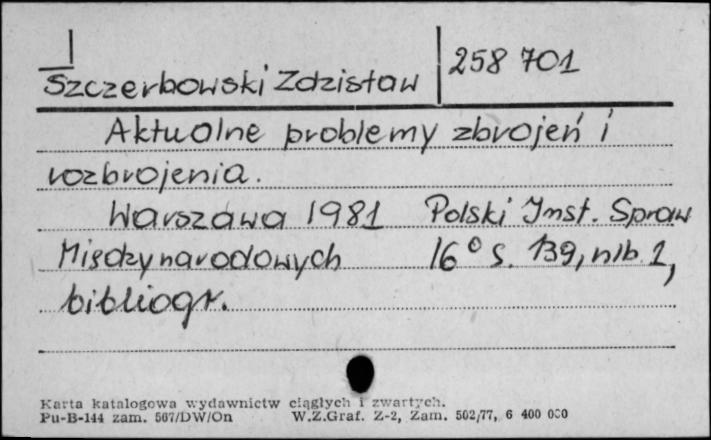 258 701
Szczerbowski Zdzisław
Aktualne problemy zbrojeń i
rozbrojenia.
Warszawa 1981 Polski Inst. Spraw
Międzynarodowych 16° s. 139, nlb. 1,
bibliogr.
Karta katalogowa wydawnictw ciągłych i zwartych.
Pu-B-144 zam. 567/DW/On W.Z.Graf. Z-2, Zam. 502/77, 6 400 000